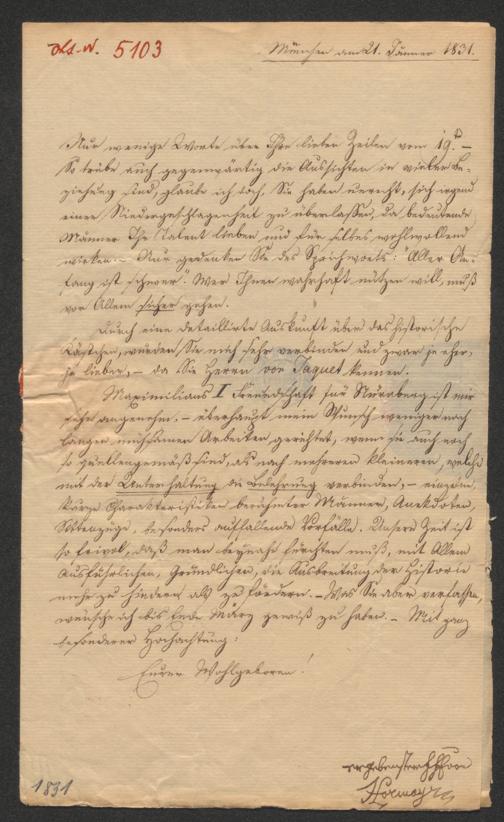 Old-N. 5103
München am 21. Jänner 1831.
Nur wenige Worte über Ihre lieben Zeilen vom 19. –
So trübe auch gegenwärtig die Aussichten in vieler Be-
ziehung sind, glaube ich doch, Sie haben unrecht, sich irgend
einer Niedergeschlagenheit zu überlassen, da bedeutende
Männer Ihr Talent lieben und für selbes wohlwollend
wirken. – Nur gedenken Sie des Sprichworts: "Aller An-
fang ist schwer". Wer Ihnen wahrhaft nützen will, muß
vor Allem sicher gehen.
Durch eine detaillirte Auskunft über das historische
Kästchen, würden Sie mich sehr verbinden und zwar je eher,
je lieber, – da Sie Herrn von Jaquet kennen.
Maximilians I Freundschaft für Nürnberg ist mir
sehr angenehm. – überhaupt mein Wunsch weniger nach
langen mühsamen Arbeiten gerichtet, wenn sie auch noch
so quellengemäß sind, als nach mehreren kleineren, welche
mit der Unterhaltung die Belehrung verbinden, – einzelne
kurze Charakteristiken berühmter Männer, Anekdoten,
Sittenzüge, besonders auffallende Vorfälle. Unsere Zeit ist
so frivol, daß man beynahe fürchten muß, mit Allem
Ausführlichen, Gründlichen, die Ausbreitung der Historie
mehr zu hindern als zu fördern. – Was Sie aber verfassen,
wünsche ich bis Ende März gewiß zu haben. – Mit ganz
besonderer Hochachtung:
Eurer Wohlgeboren!
ergebenster
Hormayr
1831